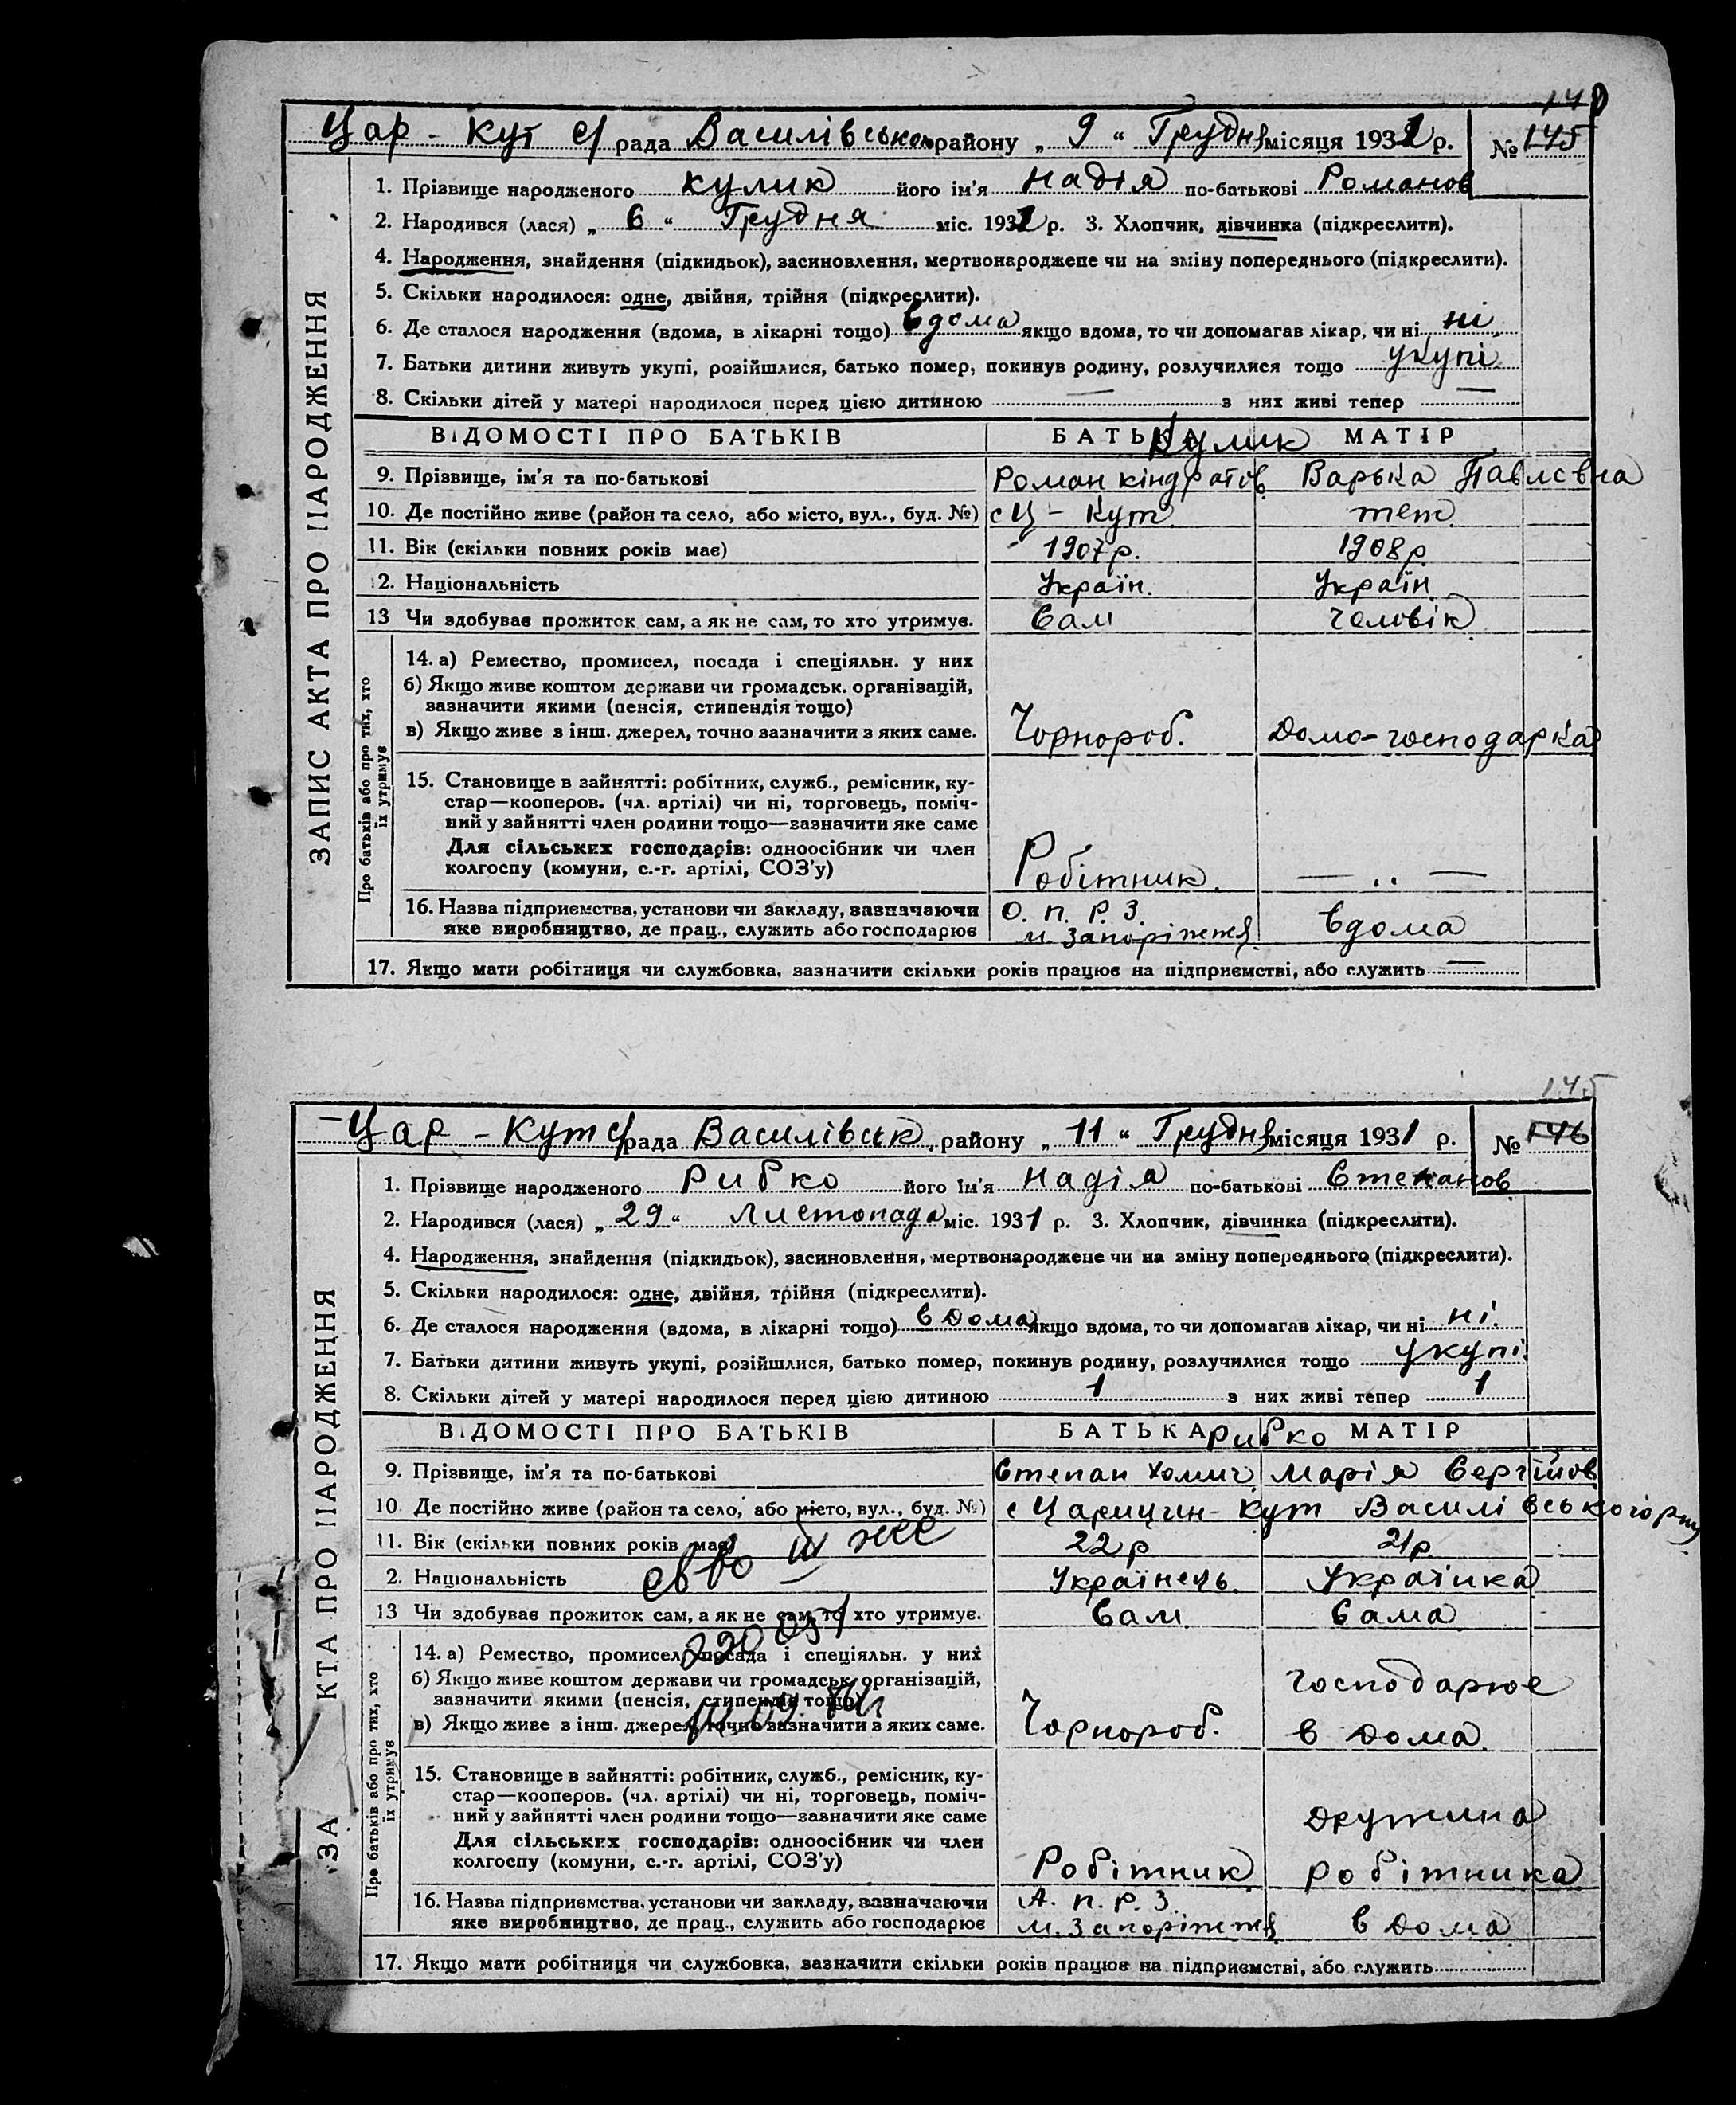 Цар - Кут с/рада Василівськ району „ 9 “ Грудня місяця 1931 р. № 145
1. Прізвище народженого Кулик його ім'я Надія по-батькові Романов
2. Народився (лася) „ 6 “ Грудня міс. 1931 р. 3. Хлопчик, дівчинка (підкреслити).
4. Народження, знайдення (підкидьок), засиновлення, мертвонароджене чи на зміну попереднього (підкреслити).
5. Скільки народилося: одне, двійня, трійня (підкреслити).
6. Де сталося народження (вдома, в лікарні тощо) вдома якщо вдома, то чи допомагав лікар, чи ні ні.
7. Батьки дитини живуть укупі, розійшлися, батько помер, покинув родину, розлучилися тощо укупі
8. Скільки дітей у матері народилося перед цією дитиною — з них живі тепер —
ВІДОМОСТІ ПРО БАТЬКІВ БАТЬКА Кулик МАТІР
9. Прізвище, ім'я та по-батькові Роман Кіндратов Варька Павлєвна
10. Де постійно живе (район та село, або місто, вул., буд. №) с Ц - Кут теж
11. Вік (скільки повних років має) 1907 р. 1908 р.
12. Національність Україн. Україн.
13 Чи здобував прожиток сам, а як не сам, то хто утримує. Сам чоловік
ЗАПИС АКТА ПРО НАРОДЖЕННЯ
Про батьків або про тих, хто їх утримує
14. а) Ремество, промисел, посада і спеціяльн. у них
б) Якщо живе коштом держави чи громадськ. організацій,
зазначити якими (пенсія, стипендія тощо)
в) Якщо живе з інш. джерел, точно зазначити з яких саме. Чорнороб. Домо-господарка
15. Становище в зайнятті: робітник, служб., ремісник, ку-
стар—кооперов. (чл. артілі) чи ні, торговець, поміч-
ний у зайнятті член родини тощо—зазначити яке саме
Для сільських господарів: одноосібник чи член
колгоспу (комуни, с.-г. артілі, СОЗ'у) Робітник. — .. —
16. Назва підприємства, установи чи закладу, зазначаючи О. П. Р. З.
яке виробництво, де прац., служить або господарює м. Запоріжжя вдома
17. Якщо мати робітниця чи службовка, зазначити скільки років працює на підприємстві, або служить —
145
Цар - Кут с/рада Василівськ. району „ 11 “ Грудня місяця 1931 р. № 146
1. Прізвище народженого Рибко його ім'я Надія по-батькові Степанов
2. Народився (лася) „ 29 “ Листопада міс. 1931 р. 3. Хлопчик, дівчинка (підкреслити).
4. Народження, знайдення (підкидьок), засиновлення, мертвонароджене чи на зміну попереднього (підкреслити).
5. Скільки народилося: одне, двійня, трійня (підкреслити).
6. Де сталося народження (вдома, в лікарні тощо) в дома якщо вдома, то чи допомагав лікар, чи ні ні.
7. Батьки дитини живуть укупі, розійшлися, батько помер, покинув родину, розлучилися тощо укупі.
8. Скільки дітей у матері народилося перед цією дитиною 1 з них живі тепер 1
ВІДОМОСТІ ПРО БАТЬКІВ БАТЬКА Рибко МАТІР
9. Прізвище, ім'я та по-батькові Степан Хомич Марія Сергійов
10 Де постійно живе (район та село, або місто, вул., буд. №) с Царицин-Кут Василівського
11. Вік (скільки повних років має) 22 р 21 р.
2. Національність Українець. Українка
13 Чи здобував прожиток сам, а як не сам, то хто утримує. Сам Сама
КТА ПРО НАРОДЖЕННЯ
ЗА
Про батьків або про тих, хто їх утримує
14. а) Ремество, промисел, посада і спеціяльн. у них
б) Якщо живе коштом держави чи громадськ. організацій, господарює
зазначити якими (пенсія, стипендія тощо)
в) Якщо живе з інш. джерел, точно зазначити з яких саме. Чорнороб. в дома.
15. Становище в зайнятті: робітник, служб., ремісник, ку-
стар—кооперов. (чл. артілі) чи ні, торговець, поміч-
ний у зайнятті член родини тощо—зазначити яке саме дружина
Для сільських господарів: одноосібник чи член
колгоспу (комуни, с.-г. артілі, СОЗ'у) Робітник робітника
16. Назва підприємства, установи чи закладу, зазначаючи А. П. Р. З.
яке виробництво, де прац., служить або господарює м. Запоріжжя в дома
17. Якщо мати робітниця чи службовка, зазначити скільки років працює на підприємстві, або служить